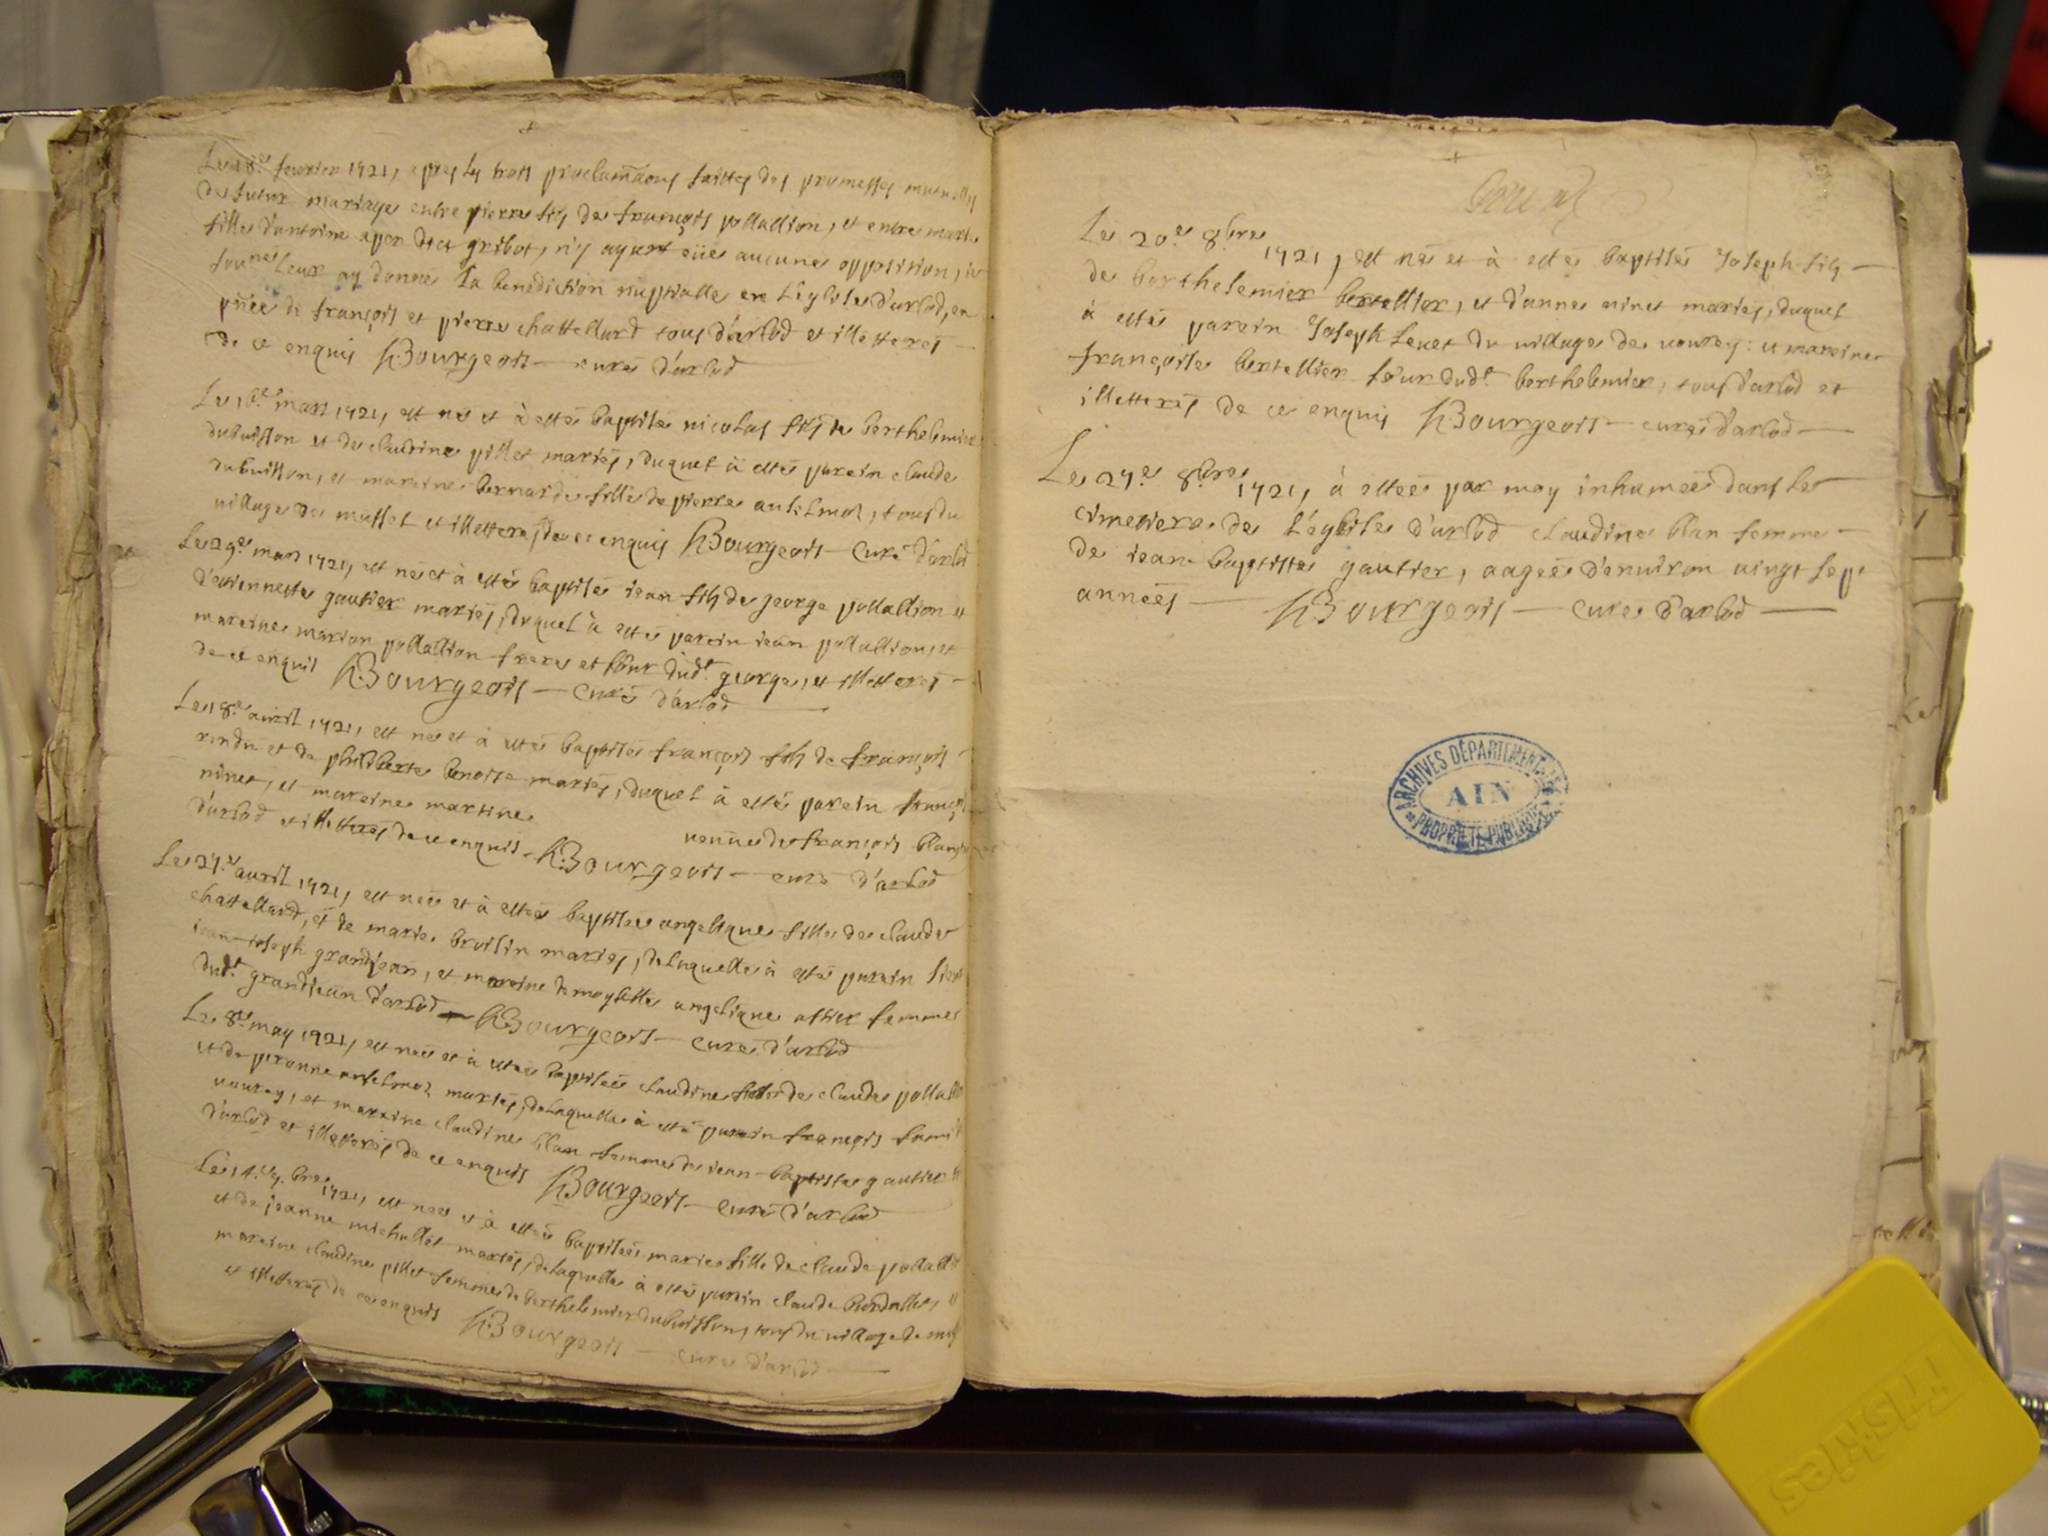 Le 18e fevrier 1721, apres les trois proclamaõns faittes des promesses mutuelles
de futur mariage entre pierre fils de françois pollallion, et entre
fille d'antoine apon dict gribot, n'y ayant eüe aucune opposition, je
leur ay donné la benediction nuptialle en l'eglise d'arlod, en
pñce de françois et pierre chattellard tous d'arlod et illetterés
de ce enquis HBourgeois curé d'arlod
Le 16e mars 1721, est né et à esté baptisé nicolas fils de berthelemier
dubuisson et de claudine pillet mariés, duquel à esté parein claude
dubuisson, et mareine bernarde fille de pierre anselmoz, tous du
village de mussel et illetterés de ce enquis HBourgeois Curé d'arlod
Le 29e mars 1721, est né et à esté baptisé jean fils de george pollallion et
d'estiennette gautier mariés, duquel à esté parein jean pollallion, et
mareine marion pollallion frere et sœur dudt george, et illetterés
de ce enquis HBourgeois curé d'arlod
Le 18e avril 1721, est né et à esté baptisé françois fils de françois
rendu et de philiberte benoite mariés, duquel à esté parein françois
ninet, et mareine martine
veuve de françois
d'arlod et illetterés de ce enquis HBourgeois curé d'arlod
Le 27e avril 1721, est née et à estée baptisée angelique fille de claude
chattellard, et de marie brusin mariés, de laquelle à esté parein
jean-joseph grandjean, et mareine demoyselle angelique femme
dudt grandjean d'arlod HBourgeois curé d'arlod
Le 8e may 1721, est née et à estée baptisée claudine fille de claude
et de peronne anselmoz mariés, de laquelle à esté parein françois
vouray, et mareine claudine blan femme de jean-baptiste gautier
d'arlod et illetterés de ce enquis HBourgeois curé d'arlod
Le 14e 7bre 1721, est née et à estée baptisée marie fille de claude
et de jeanne michallet mariés, de laquelle à esté parein claude
mareine claudine pillet femme de berthelemier dubuisson, tous du village de
et illetterés de ce enquis HBourgeois curé d'arlod
Le 20e 8bre 1721, est né et à esté baptisé Joseph fils
de berthelemier bertellier, et d'anne ninet mariés, duquel
à esté parein Joseph Levet du village de vouray: et mareine
françoise bertellier sœur dudt berthelemier, tous d'arlod et
illetterés de ce enquis HBourgeois curé d'arlod
Le 27e 8bre 1721, à estée par moy inhumée dans le
cimetiere de l'eglise d'arlod claudine blan femme
de jean-baptiste gautier, aagée d'environ vingt sept
années HBourgeois curé d'arlod
ARCHIVES DÉPARTEMENTALES
AIN
PROPRIÉTÉ PUBLIQUE
Friskies